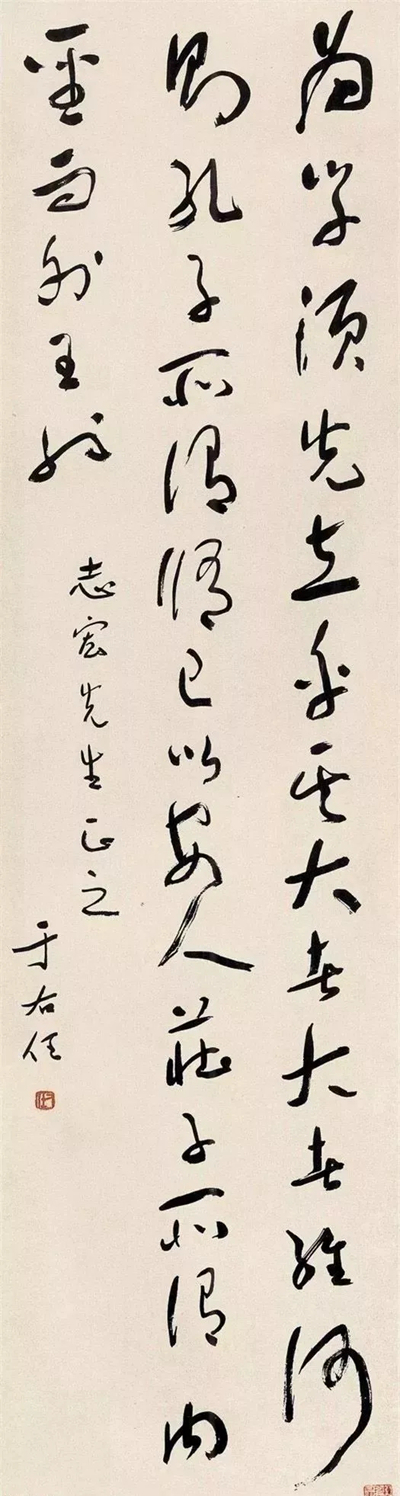 為學須先立乎其大者大者維何
則孔子所謂脩己以安人莊子所謂內
聖而外王
志宏先生正之
于右任